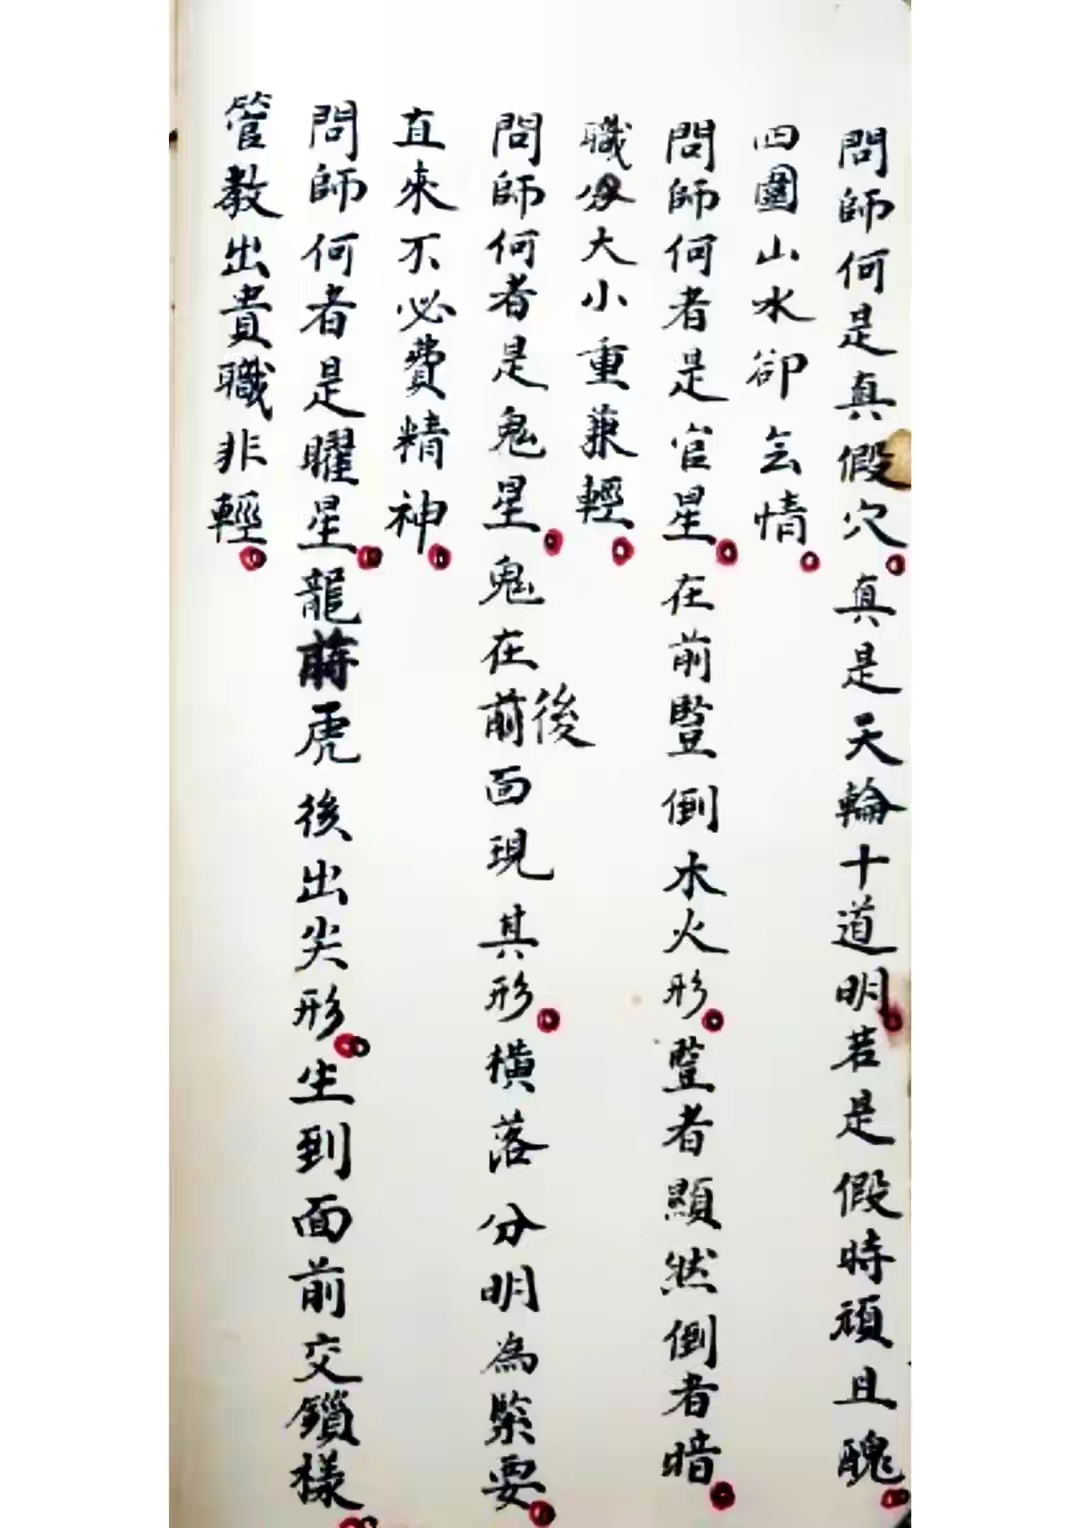 問師何是真假穴真是天輪十道明若是假時頑且醜
四圍山水卻無情
問師何者是官星在前豎倒木火形豎者顯然倒者暗
職分大小重兼輕
問師何者是鬼星鬼在前後面現其形橫落分明為緊要
直來不必費精神
問師何者是曜星龍虎後出尖形生到面前交鎖樣
管教出貴職非輕